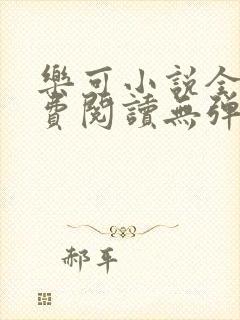 樂可小說全
費閱讀無彈
郝平